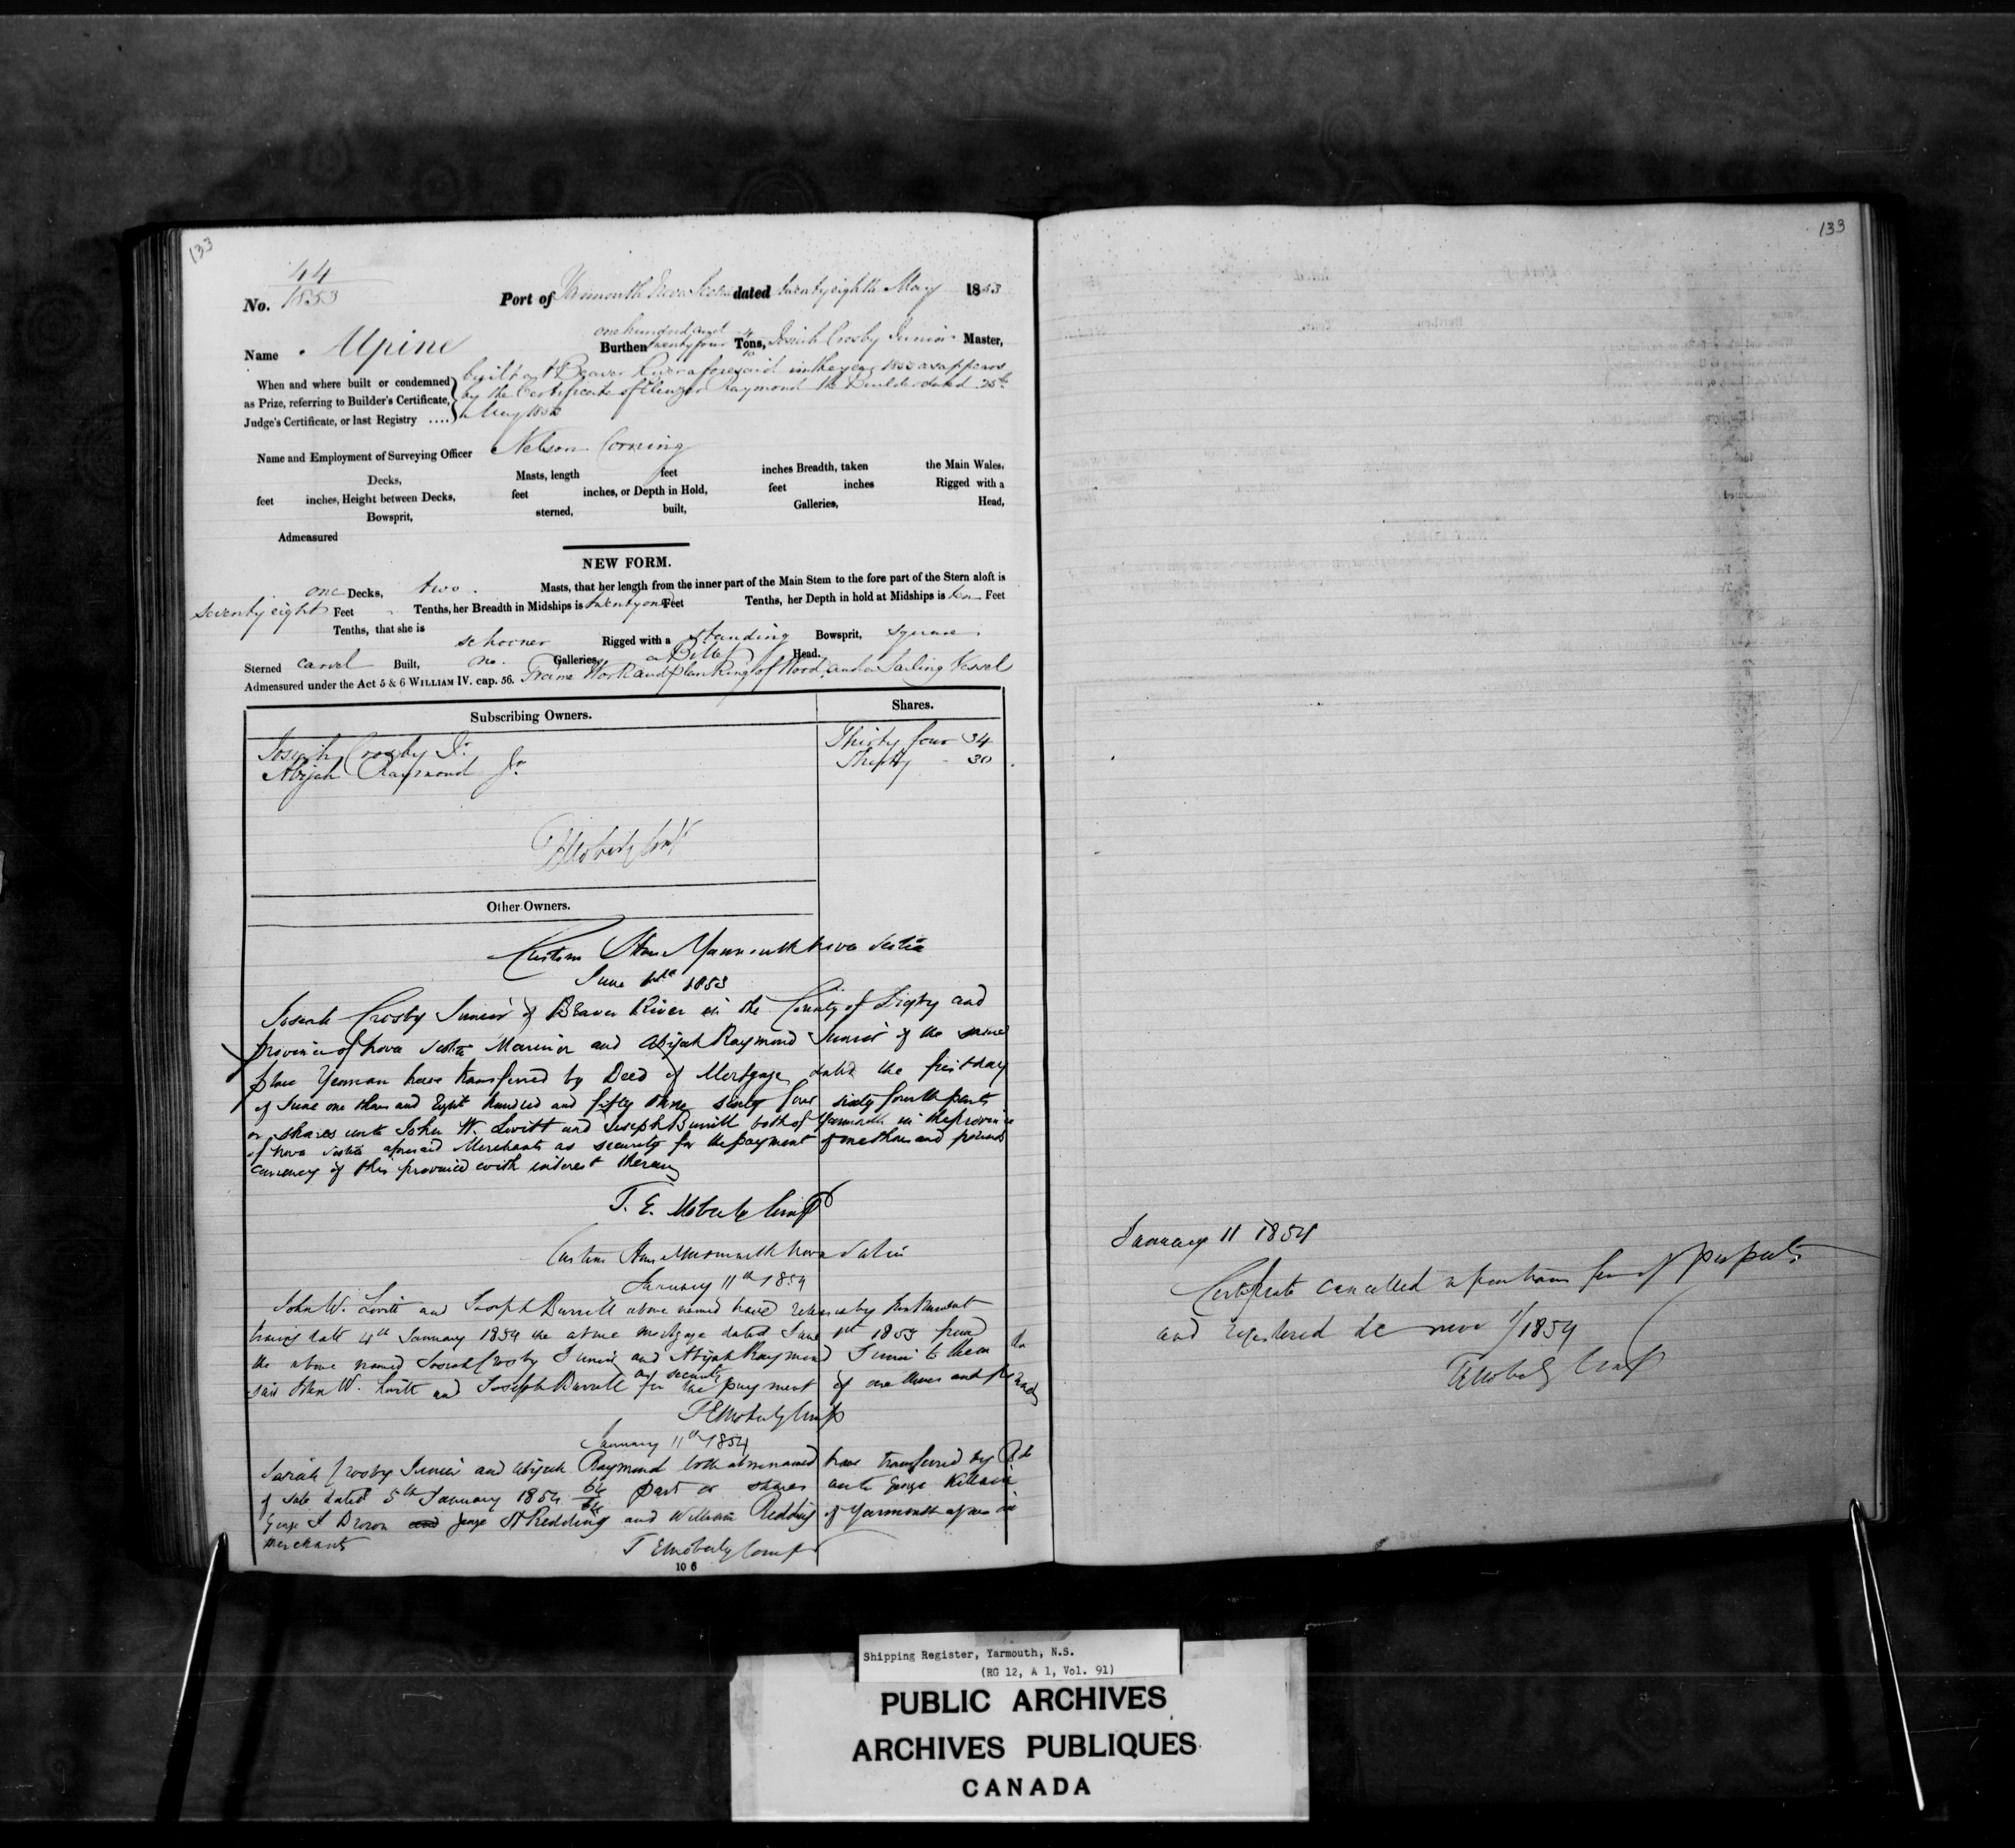 133
44
No. 1853
Port of Yarmouth Nova Scotia dated twenty eighth May 1853
Name Alpine
one hundred and
Burthen twenty four 4/10 Tons, Josiah Crosby Junior Master,
When and where built or condemned
as Prize, referring to Builder's Certificate,
Judge's Certificate, or last Registry ....
built at Beaver River aforesaid in the year 1853 as appears
by the Certificate of Raymond the Builder dated 25th
May 1853
Name and Employment of Surveying Officer Nelson Corning
Decks, Masts, length feet inches Breadth, taken the Main Wales,
feet inches, Height between Decks, feet inches, or Depth in Hold, feet inches Rigged with a
Bowsprit, sterned, built, Galleries, Head,
Admeasured
NEW FORM.
one Decks, two Masts, that her length from the inner part of the Main Stem to the fore part of the Stern aloft is
seventy eight Feet Tenths, her Breadth in Midships is twenty one Feet Tenths, her Depth in hold at Midships is ten Feet
Tenths, that she is schooner Rigged with a standing Bowsprit, square
Sterned carvel Built, no Galleries, a Billet Head.
Admeasured under the Act 5 & 6 WILLIAM IV. cap. 56. Frame Work and planking of Wood and a Sailing Vessel
Subscribing Owners. Shares.
Josiah Crosby Jr. Thirty four 34
Abijah Raymond Jr Thirty - 30
Other Owners.
Custom House Yarmouth Nova Scotia
June 1st 1853
Josiah Crosby Junior of Beaver River in the County of Digby and
province of Nova Scotia Mariner and Abijah Raymond Junior of the same
place Yeoman have transferred by Deed of Mortgage dated the first day
of June one thousand eight hundred and fifty three sixty four sixty fourth parts
or shares unto John W. Lovitt and Joseph Burrill both of Yarmouth in the province
of Nova Scotia aforesaid Merchants as security for the payment of one thousand pounds
currency of this province with interest thereon
T. E. Moberly Compr
Custom House Yarmouth Nova Scotia
January 11th 1854
John W. Lovitt and Joseph Burrill above named have released by Instrument
bearing date 4th January 1854 the above mortgage dated June 1st 1853 from
the above named Josiah Crosby Junior and Abijah Raymond Junior to them the
said John W. Lovitt and Joseph Burrill as security for the payment of one thousand pounds
T E Moberly Compr
January 11th 1854
Josiah Crosby Junior and Abijah Raymond both above named have transferred by Bill
of sale dated 5th January 1854 64/64 part or shares unto George Killam
George J Brown and George H Redding and William Redding of Yarmouth aforesaid
Merchants
T E Moberly Compr
10 6
133
January 11 1854
Certificate cancelled
and registered de novo 1/1854
T E Moberly Compr
Shipping Register, Yarmouth, N.S.
(RG 12, A 1, Vol. 91)
PUBLIC ARCHIVES
ARCHIVES PUBLIQUES
CANADA